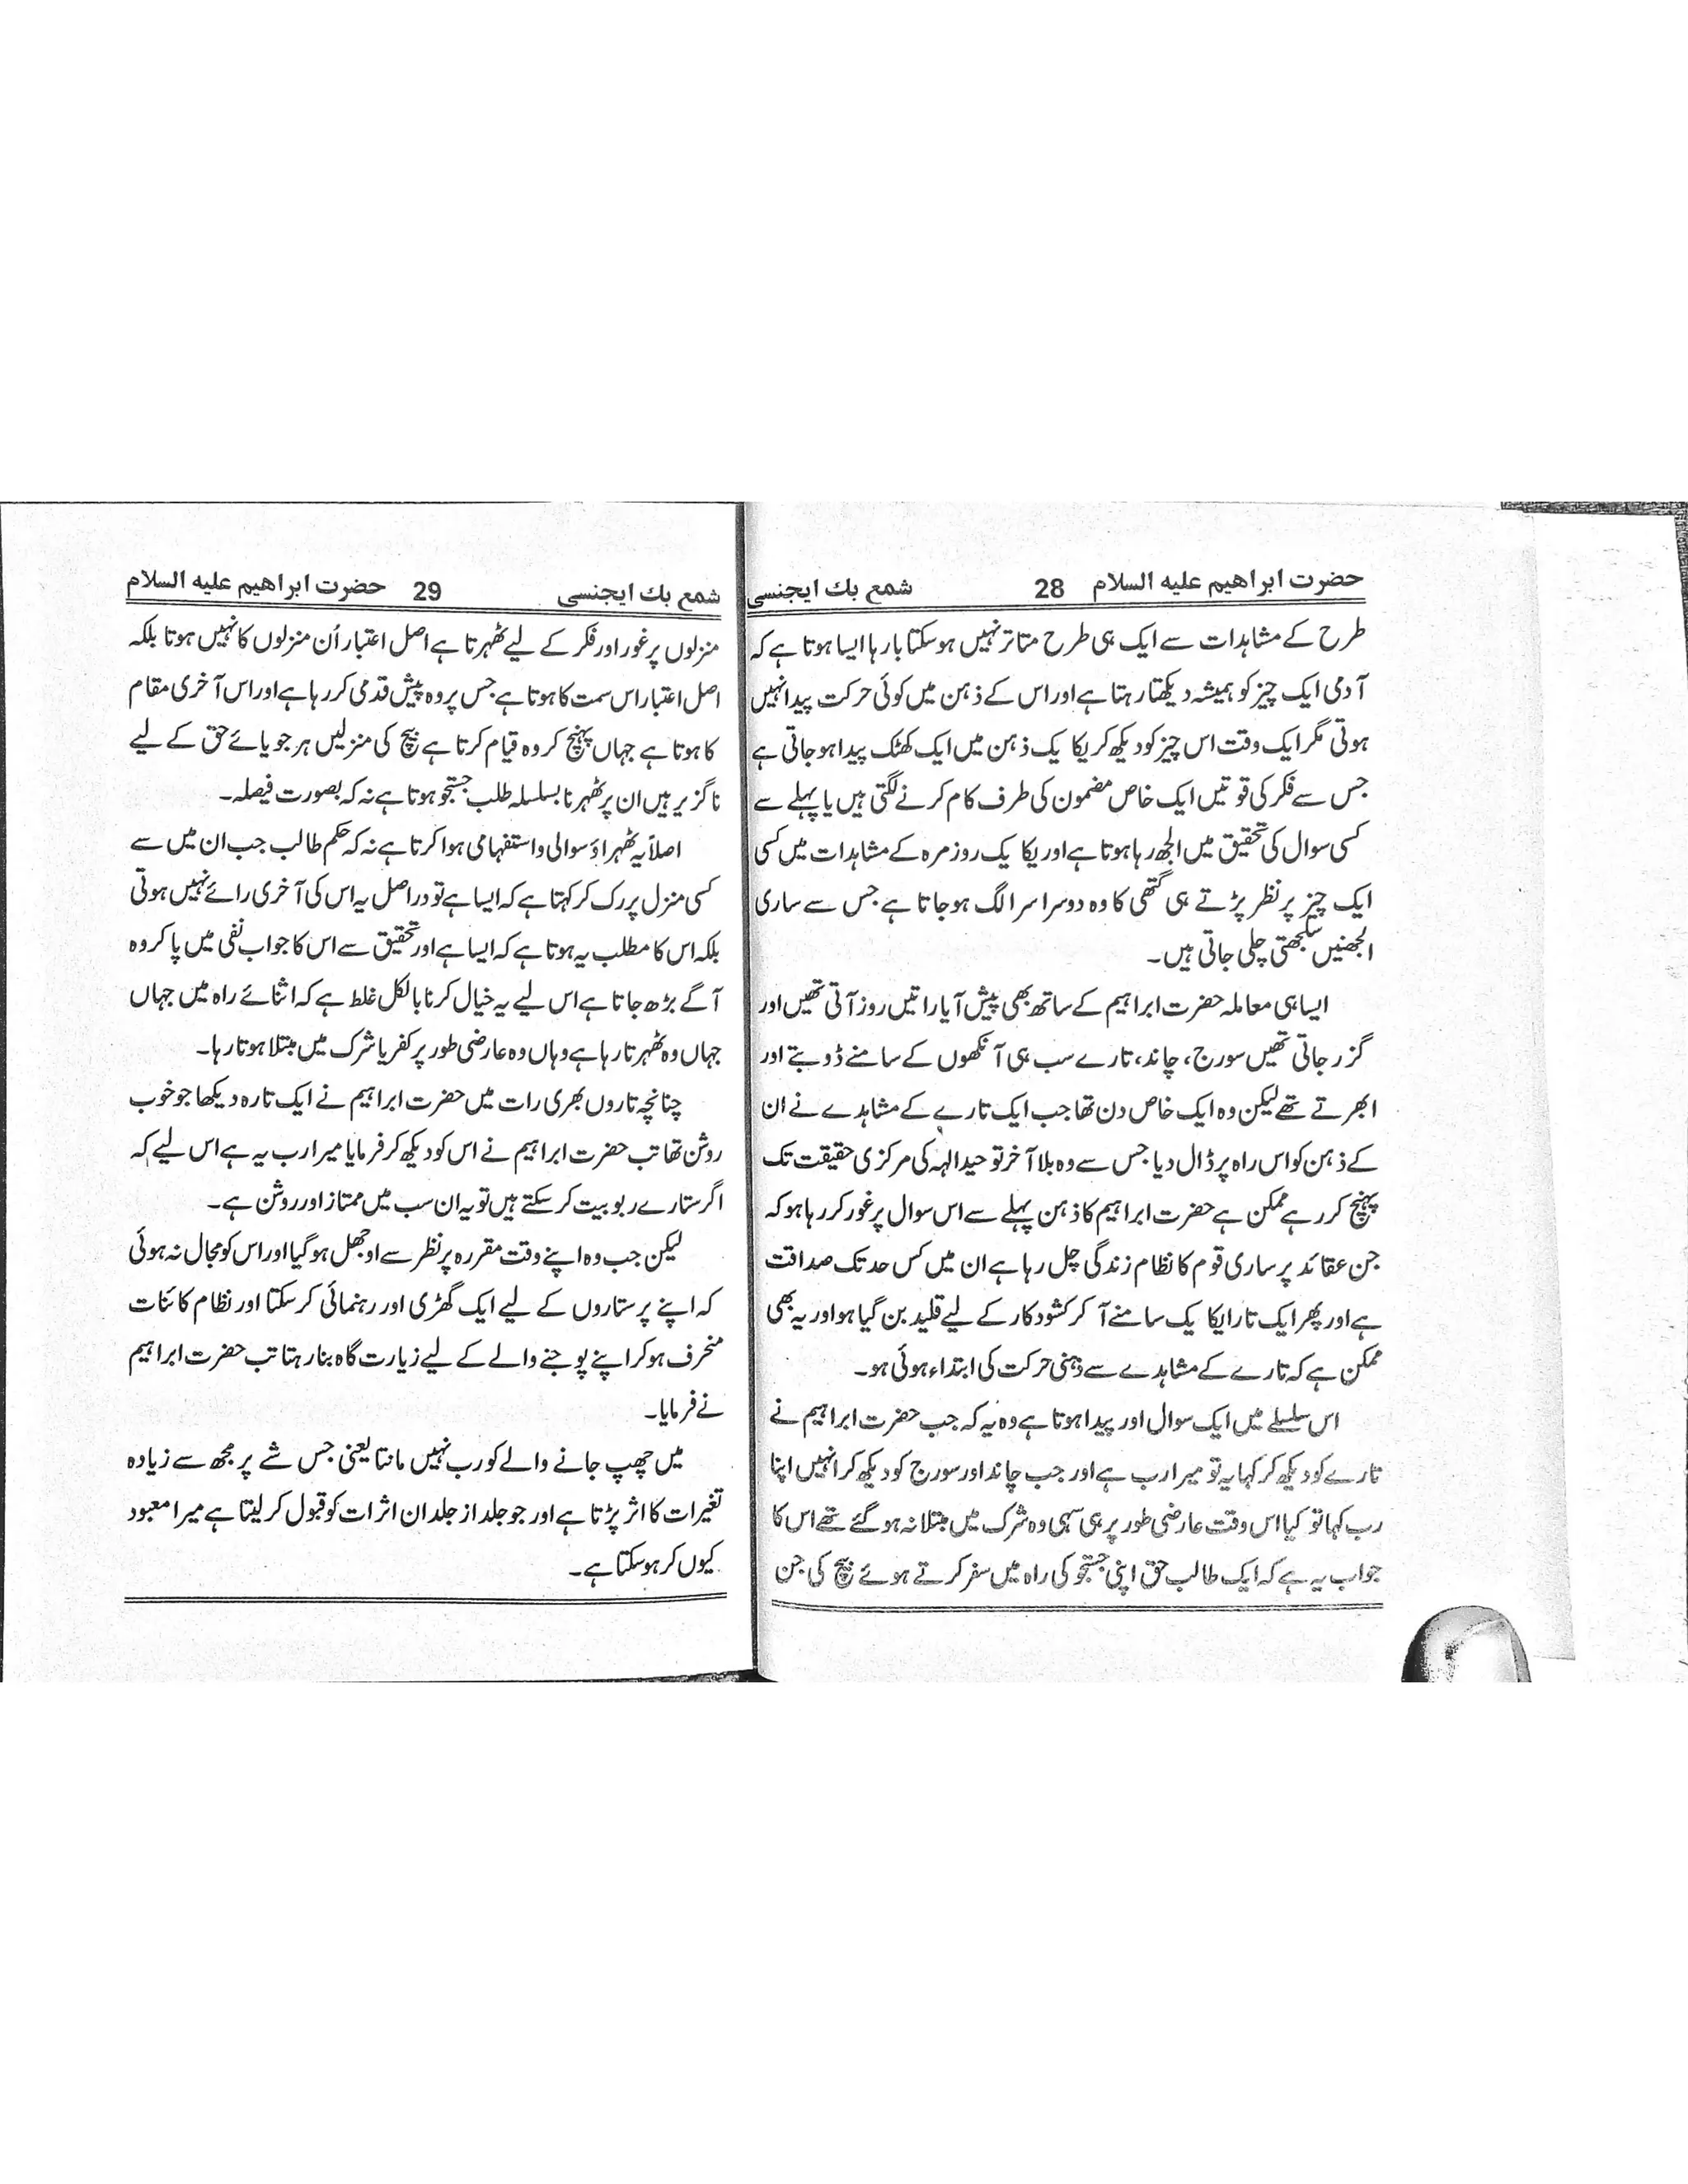 حضرت ابراھیم علیہ السلام 28 شمع بك ایجنسی
طرح کے مشاہدات سے ایک ہی طرح متاثر نہیں ہوسکتا بارہا ایسا ہوتا ہے کہ
آدمی ایک چیز کو ہمیشہ دیکھتا رہتا ہے اور اس کے ذہن میں کوئی حرکت پیدا نہیں
ہوتی مگر ایک وقت اس چیز کو دیکھ کر یکا یک ذہن میں ایک کھٹک پیدا ہو جاتی ہے
جس سے فکر کی قوتیں ایک خاص مضمون کی طرف کام کرنے لگتی ہیں یا پہلے سے
کسی سوال کی تحقیق میں الجھ رہا ہوتا ہے اور یکا یک روزمرہ کے مشاہدات میں کسی
ایک چیز پر نظر پڑتے ہی گتھی کا وہ دوسرا سرا الگ ہو جاتا ہے جس سے ساری
الجھنیں سلجھتی چلی جاتی ہیں۔
ایسا ہی معاملہ حضرت ابراہیم کے ساتھ بھی پیش آیا راتیں روز آتی تھیں اور
گزر جاتی تھیں سورج، چاند، تارے سب ہی آنکھوں کے سامنے ڈوبتے اور
ابھرتے تھے لیکن وہ ایک خاص دن تھا جب ایک تارے کے مشاہدے نے ان
کے ذہن کو اس راہ پر ڈال دیا جس سے وہ بلا آخر توحید الہہ کی مرکزی حقیقت تک
پہنچ کر رہے ممکن ہے حضرت ابراہیم کا ذہن پہلے سے اس سوال پر غور کر رہا ہو کہ
جن عقائد پر ساری قوم کا نظام زندگی چل رہا ہے ان میں کس حد تک صداقت
ہے اور پھر ایک تارا یکا یک سامنے آ کر کشود کار کے لیے قلید بن گیا ہو اور یہ بھی
ممکن ہے کہ تارے کے مشاہدے سے ذہنی حرکت کی ابتداء ہوئی ہو۔
اس سلسلے میں ایک سوال اور پیدا ہوتا ہے وہ یہ کہ جب حضرت ابراہیم نے
تارے کو دیکھ کر کہا یہ تو میرا رب ہے اور جب چاند اور سورج کو دیکھ کر انہیں اپنا
رب کہا تو کیا اس وقت عارضی طور پر ہی سہی وہ شرک میں مبتلا نہ ہو گئے تھے اس کا
جواب یہ ہے کہ ایک طالب حق اپنی جستجو کی راہ میں سفر کرتے ہوئے بیچ کی جن
شمع بك ایجنسی 29 حضرت ابراھیم علیہ السلام
منزلوں پر غور اور فکر کے لیے ٹھہرتا ہے اصل اعتبار اُن منزلوں کا نہیں ہوتا بلکہ
اصل اعتبار اس سمت کا ہوتا ہے جس پر وہ پیش قدمی کر رہا ہے اور اس آخری مقام
کا ہوتا ہے جہاں پہنچ کر وہ قیام کرتا ہے بیچ کی منزلیں ہر جویائے حق کے لیے
ناگزیر ہیں ان پر ٹھہرنا بسلسلہ طلب جستجو ہوتا ہے نہ کہ بصورت فیصلہ۔
اصلاً یہ ٹھہراؤ سوالی و استفہامی ہوا کرتا ہے نہ کہ حکم طالب جب ان میں سے
کسی منزل پر رک کر کہتا ہے کہ ایسا ہے تو دراصل یہ اس کی آخری رائے نہیں ہوتی
بلکہ اس کا مطلب یہ ہوتا ہے کہ ایسا ہے اور تحقیق سے اس کا جواب نفی میں پا کر وہ
آگے بڑھ جاتا ہے اس لیے یہ خیال کرنا بالکل غلط ہے کہ اثنائے راہ میں جہاں
جہاں وہ ٹھہرتا رہا ہے وہاں وہ عارضی طور پر کفر یا شرک میں مبتلا ہوتا رہا۔
چنانچہ تاروں بھری رات میں حضرت ابراہیم نے ایک تارہ دیکھا جو خوب
روشن تھا تب حضرت ابراہیم نے اس کو دیکھ کر فرمایا میرا رب یہ ہے اس لیے کہ
اگر ستارے ربوبیت کر سکتے ہیں تو یہ ان سب میں ممتاز اور روشن ہے۔
لیکن جب وہ اپنے وقت مقررہ پر نظر سے اوجھل ہو گیا اور اس کو مجال نہ ہوئی
کہ اپنے پرستاروں کے لیے ایک گھڑی اور رہنمائی کر سکتا اور نظام کائنات
منحرف ہو کر اپنے پوجنے والے کے لیے زیارت گاہ بنا رہتا تب حضرت ابراہیم
نے فرمایا۔
میں چھپ جانے والے کو رب نہیں مانتا یعنی جس شے پر مجھ سے زیادہ
تغیرات کا اثر پڑتا ہے اور جو جلد از جلد ان اثرات کو قبول کر لیتا ہے میرا معبود
کیوں کر ہو سکتا ہے۔